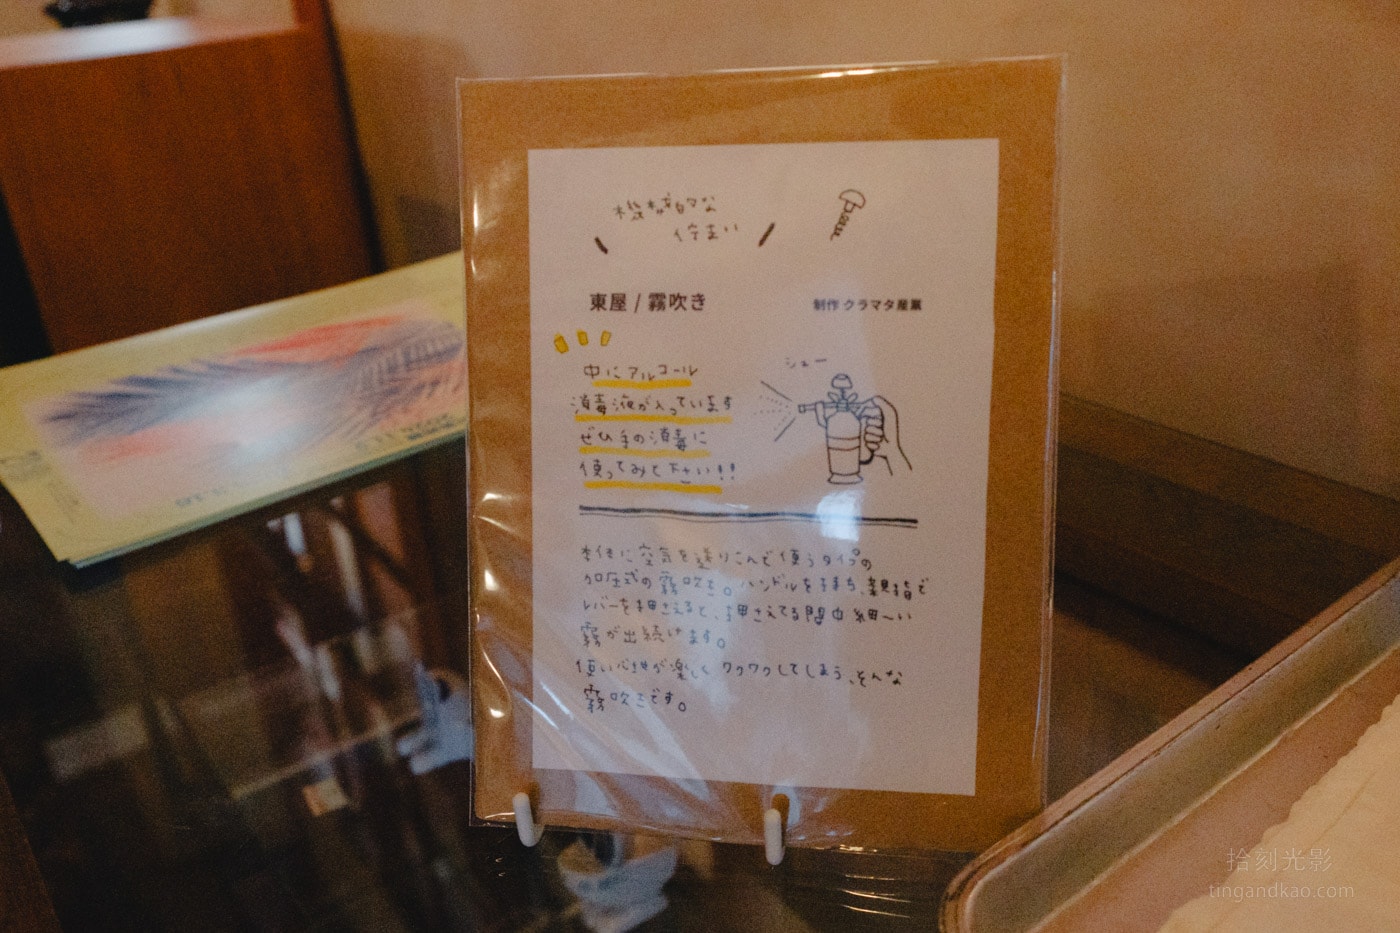 機械的な
住まい
東屋 / 霧吹き
制作 クラマタ産業
中にアルコール
消毒液が入っています
ぜひ手の消毒に
使ってみて下さい!!
シュー
本体に空気を送りこんで使うタイプの
加圧式の霧吹き。ハンドルを持ち、親指で
レバーを押さえると、押さえてる間中 細〜い
霧が出続けます。
使い心地が楽しく ワクワクしてしまう、そんな
霧吹きです。
拾刻光影
tingandkao.com